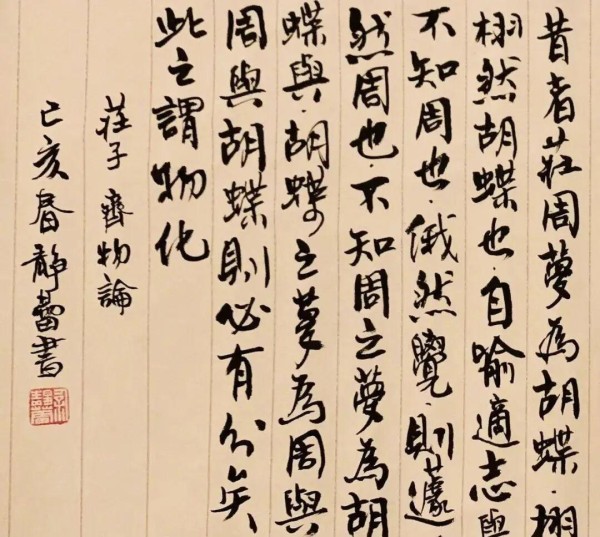 昔者莊周夢為胡蝶·栩
栩然胡蝶也·自喻適志與
不知周也·俄然覺·則蘧
然周也·不知周之夢為胡
蝶與·胡蝶之夢為周與
周與胡蝶則必有分矣
此之謂物化
莊子 齊物論
己亥春靜蕾書